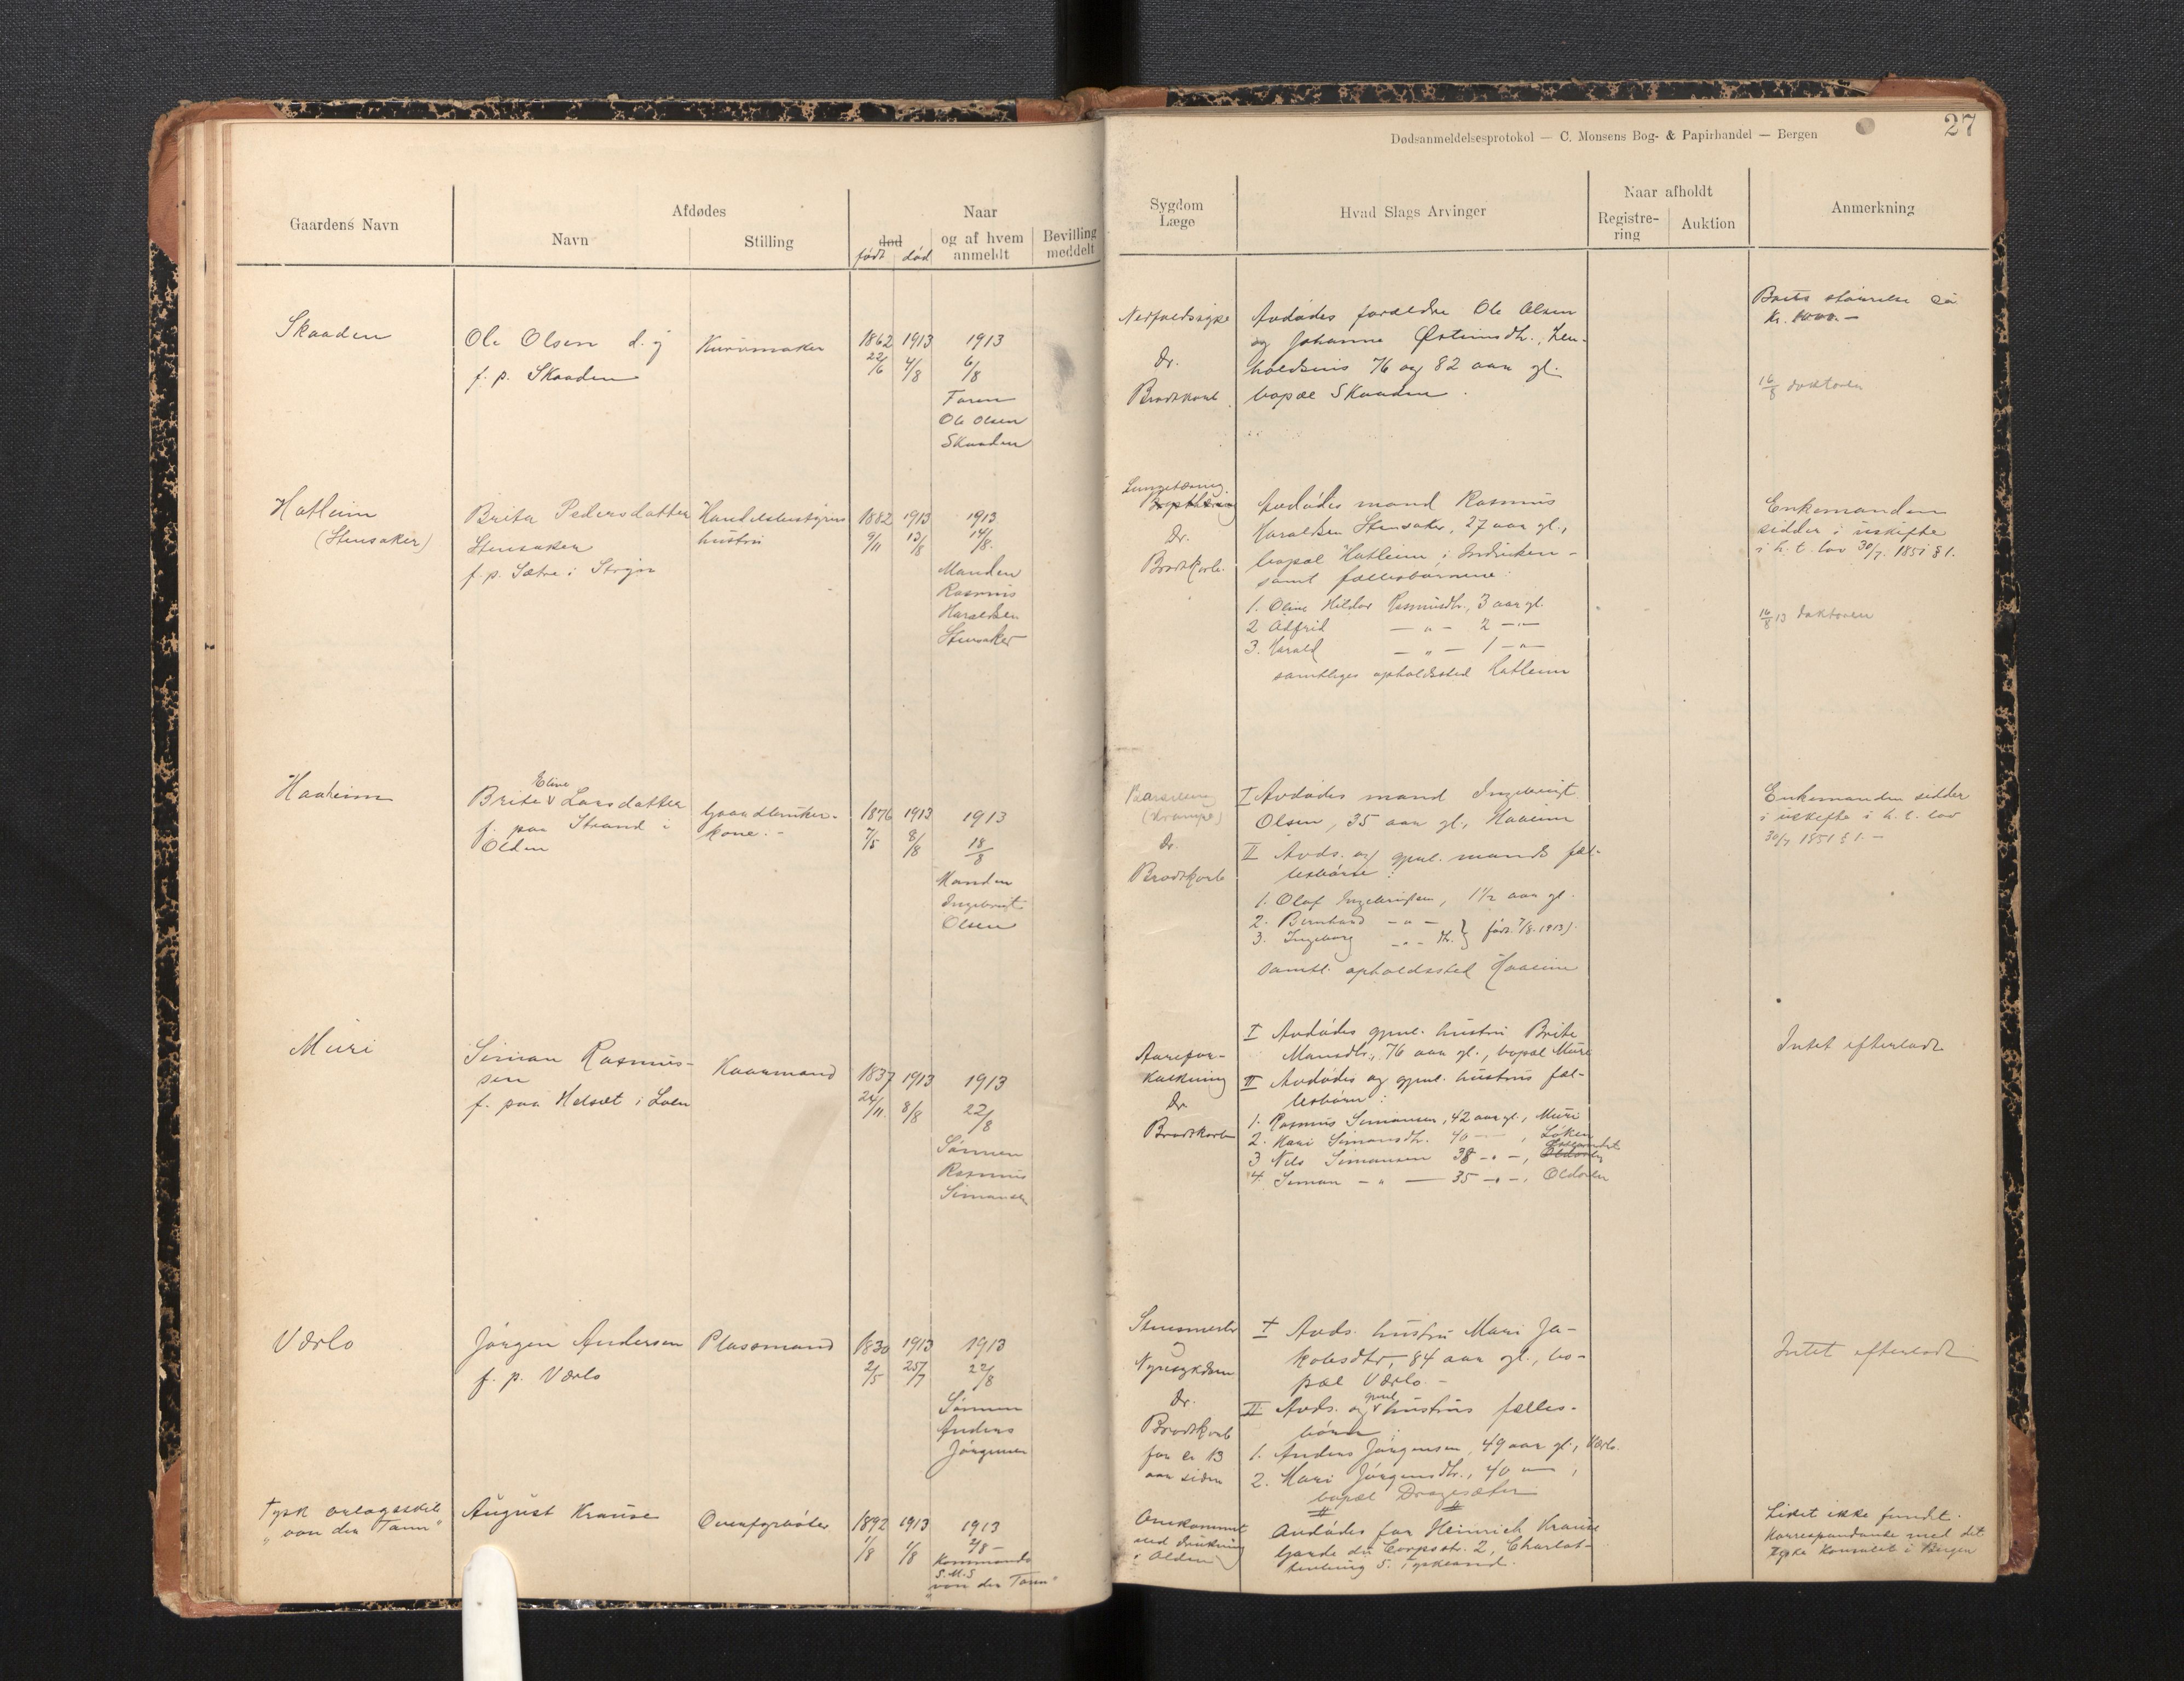 Dødsanmeldelsesprotokol — C. Monsens Bog- & Papirhandel — Bergen
27
Gaardens Navn
Afdødes
Navn
Stilling
Naar
død
født død
og af hvem
anmeldt
Bevilling
meddelt
Sygdom
Læge
Hvad Slags Arvinger
Naar afholdt
Registre-
ring
Auktion
Anmerkning
Skaaden
Ole Olsen d. y
f. p. Skaaden
Kurvmaker
1862 1913 1913
22/6 4/8 6/8
Faren
Ole Olsen
Skaaden
Nedfaldssyke
Dr.
Brodtkorb
Avdødes forældre Ole Olsen
og Johanne Østensdtr., hen-
holdsvis 76 og 82 aar gl.
bopæl Skaaden.
Boets størrelse ca
Kr. 1000.-
16/8 doktoren
Hatleim
(Stensaker)
Brita Pedersdatter
Stensaker
f. p. Sætre i Stryn
Handelsbestyrers
hustru
1882 1913 1913
9/11 13/8 14/8.
Manden
Rasmus
Haraldsen
Stensaker
Lungetæring
Dr.
Brodtkorb.
Avdødes mand Rasmus
Haraldsen Stensaker, 27 aar gl.,
bopæl Hatleim i Indviken -
samt fællesbørnene:
1. Oline Hildur Rasmusdtr., 3 aar gl.
2 Alfrid — „ — 2 — „ —
3. Harald — „ — 1 — „ —
samtliges opholdssted Hatleim
Enkemanden
sidder i uskifte
i h. t. lov 30/7. 1851 § 1.
16/8 13 doktoren
Haaheim
Eline
Brite v Larsdatter
f. paa Strand i
Olden
Gaardbruker-
kone.-
1876 1913 1913
7/5 8/8 18/8
Manden
Ingebrigt
Olsen
Barselseng
(Krampe)
Dr.
Brodtkorb
I Avdødes mand Ingebrigt
Olsen, 35 aar gl., Haaeim
II Avds. og gjenl. mands fæl-
lesbørn:
1. Olaf Ingebrigtsen, 1 1/2 aar gl.
2. Bernhard — „ —
3. Ingeborg — „ — dtr. } født 7/8. 1913).
Samtl. opholdssted Haaeim
Enkemanden sidder
i uskifte i h. t. lov
30/7 1851 § 1. —
Muri
Simon Rasmus-
sen
f. paa Helset i Loen
Kaarmand
1837 1913 1913
24/11. 8/8 22/8
Sønnen
Rasmus
Simonsen
Aarefor-
kalkning
Dr.
Brodtkorb
I Avdødes gjenl. hustru Brite
Monsdtr., 76 aar gl., bopæl Muri
II Avdødes og gjenl. hustrus fæl-
lesbørn:
1. Rasmus Simonsen, 42 aar gl., Muri
2. Kari Simonsdtr. 40 — , Løken
3 Nils Simonsen 38 — „ —,
4. Simon — „ — 35 — „ —, Oldøren
Intet efterladt
Værlo
Jørgen Andersen
f. p. Værlo
Plassmand
1830 1913 1913
2/5 25/7 22/8
Sønnen
Anders
Jørgensen
Stensmerter
Nyresykdom
Dr.
Brodtkorb
for ca 13
aar siden
I Avds. hustru Mari Ja-
kobsdtr, 84 aar gl., bo-
pæl Værlo -
gjenl.
II Avds. og v hustrus fælles-
børn:
1. Anders Jørgensen, 49 aar gl., Værlo.
2. Mari Jørgensdtr., 40 — ,
bopæl Dragesæter
Intet efterladt
Tysk orlogsskib
„von der Tann"
August Krause
1892 1913 1913
1/8 1/8 2/8 -
Kommando
S.M.S
„von der Tann"
Omkommet
ved drukning
i Olden
Avdødes far Heinrich Krause
Garde du Corpsstr. 2, Charlot-
tenburg 5. Tyskland.
Liket ikke fundt.
Korrespondanse med det
tyske Konsulat i Bergen